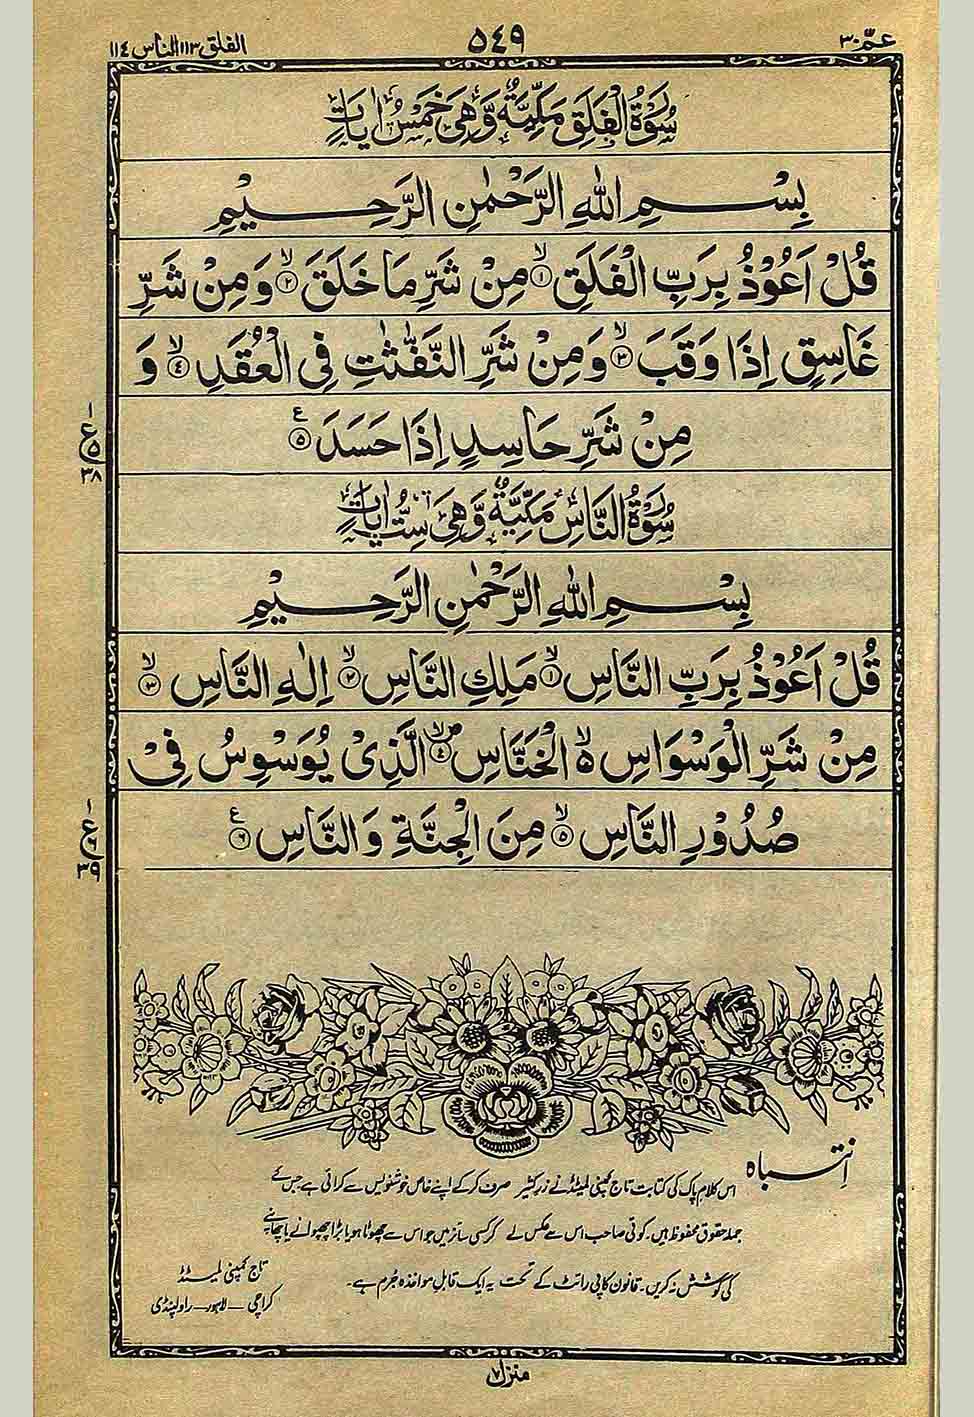 عمّ ٣٠
٥٤٩
الفلق ١١٣ الناس ١١٤
سُوْرَةُ الْفَلَقِ مَكِّيَّةٌ وَّهِيَ خَمْسُ اٰيَاتٍ
بِسْمِ اللهِ الرَّحْمٰنِ الرَّحِيْمِ
قُلْ اَعُوْذُ بِرَبِّ الْفَلَقِ ۙ﴿۱﴾ مِنْ شَرِّ مَا خَلَقَ ۙ﴿۲﴾ وَ مِنْ شَرِّ
غَاسِقٍ اِذَا وَقَبَ ۙ﴿۳﴾ وَ مِنْ شَرِّ النَّفّٰثٰتِ فِى الْعُقَدِ ۙ﴿٤﴾ وَ
مِنْ شَرِّ حَاسِدٍ اِذَا حَسَدَ ﴿۵﴾ ع
١ ع ٥ ٣٨
سُوْرَةُ النَّاسِ مَكِّيَّةٌ وَّهِيَ سِتُّ اٰيَاتٍ
بِسْمِ اللهِ الرَّحْمٰنِ الرَّحِيْمِ
قُلْ اَعُوْذُ بِرَبِّ النَّاسِ ۙ﴿۱﴾ مَلِكِ النَّاسِ ۙ﴿۲﴾ اِلٰهِ النَّاسِ ۙ﴿۳﴾
مِنْ شَرِّ الْوَسْوَاسِ ۙ۬ الْخَنَّاسِ ۪ۙ﴿٤﴾ الَّذِىْ يُوَسْوِسُ فِىْ
صُدُوْرِ النَّاسِ ۙ﴿۵﴾ مِنَ الْجِنَّةِ وَ النَّاسِ ﴿٦﴾ ع
١ ع ٦ ٣٩
انتباہ
اس کلام پاک کی کتابت تاج کمپنی لمیٹڈ نے زرکثیر صرف کرکے اپنے خاص خوشنویس سے کرائی ہے جس کے
جملہ حقوق محفوظ ہیں۔ کوئی صاحب اس سے عکس لے کر کسی سائز میں جو اس سے چھوٹا ہو یا بڑا چھپوانے یا چھاپنے
کی کوشش نہ کریں۔ قانون کاپی رائٹ کے تحت یہ ایک قابل مواخذہ جرم ہے۔
تاج کمپنی لمیٹڈ
کراچی ــ لاہور ــ راولپنڈی
منزل ٧